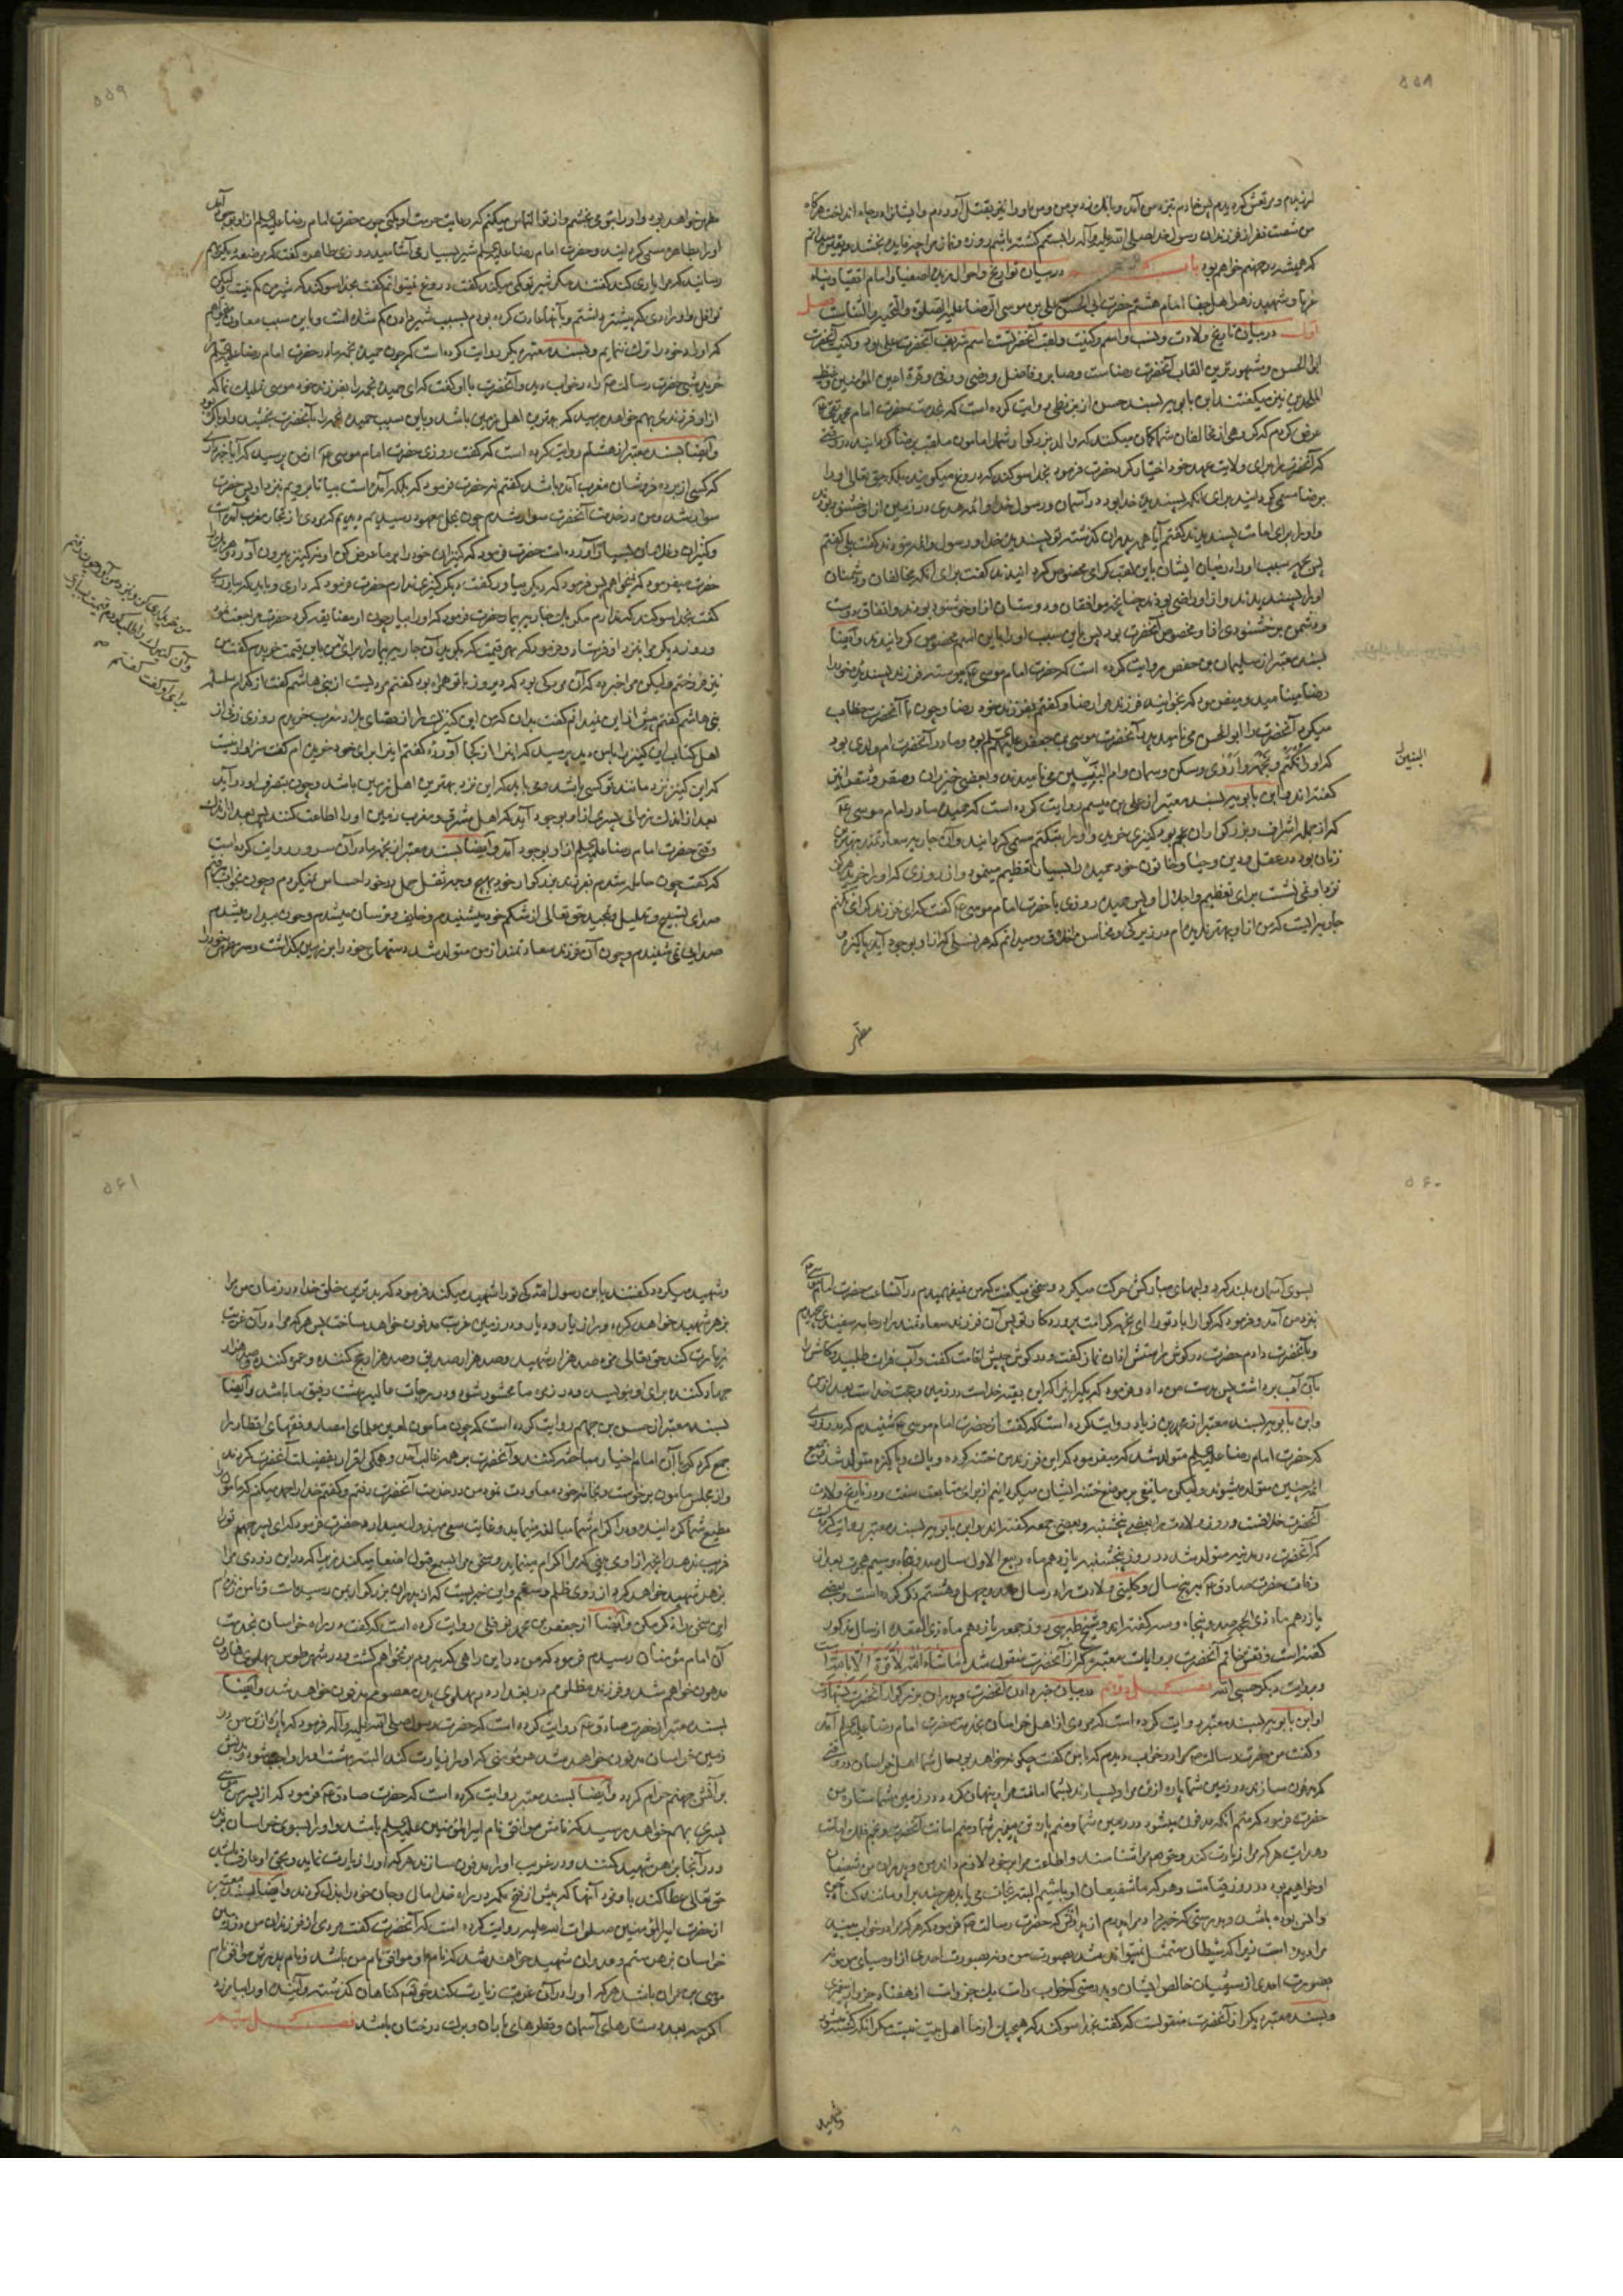 ۵۵۸
لرزیدم و مرتعش گردیدم پس خادم نزد من آمد و بانک زد بر من و من او را نیز بقتل آوردم و ایشان را در چاه انداخت هرگاه
من شصت نفر از فرزندان رسول خدا صلی الله علیه و آله را بستم کشته باشم روزه و نماز مرا چه فایده بخشد و یقین میدانم
که همیشه در جهنم خواهم بود باب در بیان تواریخ و احوال امام اتقیا و پناه
غربا و شهید زهر اهل جفا امام هشتم حضرت ابی الحسن علی بن موسی الرضا علیه الصلوة و التحیة و الثناست فصل
اول در بیان تاریخ ولادت و نسب و اسم و کنیت و لقب آنحضرتست اسم شریف آنحضرت علی بود و کنیت آنحضرت
ابوالحسن و مشهورترین القاب آنحضرت رضاست و صابر و فاضل و رضی و وفی و قرة اعین المؤمنین و غیظ
الملحدین نیز میگفتند ابن بابویه بسند حسن از بزنطی روایت کرده است که بخدمت حضرت امام محمد تقی
عرض کردم که گروهی از مخالفان شما گمان میکنند که والد بزرگوار شما را مامون ملقب برضا گردانید در وقتی
که آنحضرت را برای ولایت عهد خود اختیار کرد حضرت فرمود بخدا سوگند که دروغ میگویند بلکه حق تعالی او را
برضا مسمی گردانید برای آنکه پسندیده خدا بود در آسمان و رسول خدا و ائمه هدی در زمین از او خشنود بودند
و او را برای امامت پسندیدند گفتم آیا همه پدران گذشته تو پسندیده خدا و رسول و ائمه نبودند گفت بلی گفتم
پس بچه سبب او را در میان ایشان باین لقب گرامی مخصوص گردانیدند گفت برای آنکه مخالفان و دشمنان
او را پسندیدند و از او راضی بودند چنانچه موافقان و دوستان از او خوشنود بودند و اتفاق دوست
و دشمن بر خشنودی از او مخصوص آنحضرت بود پس باین سبب او را باین اسم مخصوص گردانیدند و ایضا
بسند معتبر از سلیمان بن حفص روایت کرده است که حضرت امام موسی پیوسته فرزند پسندیده خود را
رضا مینامید و میفرمود که بخوانید فرزند مرا رضا و گفتم بفرزند خود رضا و چون با آنحضرت خطاب
میکرد آنحضرت را ابوالحسن مینامید پدر آنحضرت موسی بن جعفر علیهم السلام بود و مادر آنحضرت ام ولدی بود
که او را تکتم و نجمه و اروی و سکن و سمان و ام البنین مینامیدند و بعضی خیزران و صقر و شقرا نیز
گفته اند و ابن بابویه بسند معتبر از علی بن میثم روایت کرده است که حمیده مادر امام موسی
که از جمله اشراف و بزرگواران عجم بود کنیزی خرید و او را بتکتم مسمی گردانید و آن جاریه سعادتمند بهترین
زنان بود در عقل و دین و حیا و خاتون خود حمیده را بسیار تعظیم مینمود و از روزی که او را خرید هرگز
نزد او نمی نشست برای تعظیم و اجلال او پس حمیده روزی با حضرت امام موسی گفت که ای فرزند گرامی تکتم
جاریه ایست که من از او بهتر ندیده ام در زیرکی و محاسن اخلاق و میدانم که هر نسلی که از او بوجود آید پاکیزه و
البنین
مطهر
۵۵۹
مطهر خواهد بود و او را بتو می بخشم و از تو التماس میکنم که رعایت حرمت او بکنی چون حضرت امام رضا علیه السلام از او بوجود آمد
او را بطاهره مسمی گردانید و حضرت امام رضا علیه السلام شیر بسیار می آشامید روزی طاهره گفت که مرضعه دیگر بهم
رسانید که مرا یاری کند گفتند مگر شیر تو کمی میکند گفت دروغ نمیتوانم گفت بخدا سوگند که شیر من کم نیست لیکن
نوافل و اورادی که پیشتر داشتم و بآنها عادت کرده بودم بسبب شیر دادن کم شده است و باین سبب معاون میخواهم
که اوراد خود را ترک ننمایم و بسند معتبر دیگر روایت کرده است که چون حمیده نجمه مادر حضرت امام رضا علیه السلام را
خرید شبی حضرت رسالت را در خواب دید و آنحضرت با او گفت که ای حمیده نجمه را بفرزند خود موسی تملیک نما که
از او فرزندی بهم خواهد رسید که بهترین اهل زمین باشد و باین سبب حمیده نجمه را بآنحضرت بخشید و او باکره بود
و ایضا بسند معتبر از هشام روایت کرده است که گفت روزی حضرت امام موسی از من پرسید که آیا خبر داری
که کسی از برده فروشان مغرب آمده باشد گفتم نه حضرت فرمود که بلکه آمده است بیا تا برویم نزد او پس حضرت
سوار شد و من در خدمت آنحضرت سوار شدم چون بمحل معهود رسیدیم دیدیم که مردی از تجار مغرب آمده است
و کنیزان و غلامان بسیار آورده است حضرت فرمود که کنیزان خود را بر ما عرض کن او نه کنیز بیرون آورد هر یک را
حضرت میفرمود که نمیخواهم پس فرمود که دیگر بیاور گفت دیگر کنیزی ندارم حضرت فرمود که داری و باید که بیاوری
گفت بخدا سوگند که ندارم مگر یک جاریه بیمار حضرت فرمود که او را بیار چون او مضایقه کرد حضرت مراجعت نمود
و روز دیگر مرا بنزد او فرستاد و فرمود که بهر قیمت که بگوید آن جاریه بیمار را برای من باین قیمت خریدم گفت من
نیز فروختم و لیکن مرا خبر ده که آن مرد که بود که دیروز با تو همراه بود گفتم مردیست از بنی هاشم گفت از کدام سلسله
بنی هاشم گفتم بیش از این نمیدانم گفت بدان که من این کنیزک را از اقصای بلاد مغرب خریدم روزی زنی از
اهل کتاب این کنیز را با من دید پرسید که این را از کجا آورده گفتم این را برای خود خریده ام گفت سزاوار نیست
که این کنیز نزد مانند تو کسی باشد و می باید که این نزد بهترین اهل زمین باشد و چون بتصرف او در آید
بعد از اندک زمانی پسری از او بوجود آید که اهل مشرق و مغرب زمین او را اطاعت کنند پس بعد از اندک
وقتی حضرت امام رضا علیه السلام از او بوجود آمد و ایضا بسند معتبر از نجمه مادر آن سرور روایت کرده است
که گفت چون حامله شدم بفرزند بزرگوار خود بهیچ وجه ثقل حمل در خود احساس نمیکردم و چون بخواب میرفتم
صدای تسبیح و تهلیل و تمجید حق تعالی از شکم خود میشنیدم و خایف و ترسان میشدم و چون بیدار میشدم
صدایی نمی شنیدم و چون آن فرزند سعادتمند از من متولد شد دستهای خود را بر زمین گذاشت و سر مطهر خود را
۵۶۰
بسوی آسمان بلند کرد و لبهای مبارکش حرکت میکرد و سخنی میگفت که من نمیفهمیدم در آن ساعت حضرت امام موسی
نزد من آمد و فرمود که گوارا باد تو را ای نجمه کرامت پروردگار تو پس آن فرزند سعادتمند را در جامه سفیدی پیچیدم
و بآنحضرت دادم حضرت در گوش راستش اذان نماز گفت و در گوش چپش اقامت گفت و آب فرات طلبید و کامش را
بآن آب برداشت پس بدست من داد و فرمود که بگیر این را که این بقیه خداست در زمین و حجت خداست بعد از من
و ابن بابویه بسند معتبر از محمد بن زیاد روایت کرده است که گفت از حضرت امام موسی شنیدم که در روزی
که حضرت امام رضا علیه السلام متولد شد که میفرمود که این فرزند من ختنه کرده و پاک و پاکیزه متولد شد و جمیع
ائمه چنین متولد میشوند و لیکن ما تیغی بر موضع ختنه ایشان میگردانیم از برای متابعت سنت و در تاریخ ولادت
آنحضرت خلافست و روز ولادت را بعضی پنجشنبه و بعضی جمعه گفته اند و ابن بابویه بسند معتبر روایت کرده است
که آنحضرت در مدینه متولد شد در روز پنجشنبه یازدهم ماه ربیع الاول سال صد و پنجاه و سیم هجرت بعد از
وفات حضرت صادق به پنج سال و کلینی ولادت را در سال صد و چهل و هشتم ذکر کرده است و بعضی
یازدهم ماه ذی الحجه صد و پنجاه و سه گفته اند و شیخ طبرسی روز جمعه یازدهم ماه ذی القعده از سال مذکور
گفته است و نقش خاتم آنحضرت بروایات معتبره که از آنحضرت منقول شد ما شاء الله لا قوة الا بالله
و بروایت دیگر حسبی الله فصل دویم در بیان خبر دادن آنحضرت و پدران بزرگوار آنحضرت بشهادت
او ابن بابویه بسند معتبر روایت کرده است که مردی از اهل خراسان بخدمت حضرت امام رضا علیه السلام آمد
و گفت من حضرت رسالت را در خواب دیدم که با من گفت چگونه خواهد بود حال شما اهل خراسان در وقتی
که مدفون سازند در زمین شما پاره از تن مرا و بسپارند بشما امانت مرا و پنهان گردد در زمین شما ستاره من
حضرت فرمود که منم آنکه مدفون میشود در زمین شما و منم پاره تن پیغمبر شما و منم امانت آنحضرت و نجم فلک امامت
و هدایت هر که مرا زیارت کند و حق مرا شناسد و اطاعت مرا بر خود لازم داند من و پدران من شفیعان
او خواهیم بود در روز قیامت و هر که ما شفیعان او باشیم البته نجات می یابد هر چند بر او مانند گناه جن
و انس بوده باشد و بدرستی که خبر داد مرا پدرم از پدرش که حضرت رسالت فرمود که هر که مرا در خواب بیند
مرا دیده است زیرا که شیطان متمثل نمیتواند شد بصورت من و نه بصورت احدی از اوصیای من و نه
بصورت احدی از شیعیان خالص ایشان و بدرستی که خواب راست یک جزو است از هفتاد جزو از پیغمبری
و بسند معتبر دیگر از آنحضرت منقولست که گفت بخدا سوگند که هیچیک از ما اهل بیت نیست مگر آنکه کشته و
شهید
۵۶۱
و شهید میگردد گفتند یا بن رسول الله کی تو را شهید میکند فرمود که بدترین خلق خدا در زمان من مرا
بزهر شهید خواهد کرد و دور از یار و دیار در زمین غربت مدفون خواهد ساخت پس هر که مرا در آن غربت
زیارت کند حق تعالی مزد صد هزار شهید و صد هزار صدیق و صد هزار حج کننده و عمره کننده و صد هزار
جهاد کننده برای او بنویسد و در زمره ما محشور شود و در درجات عالیه بهشت رفیق ما باشد و ایضا
بسند معتبر از حسن بن جهم روایت کرده است که چون مامون لعین علمای امصار و فقهای اقطار را
جمع کرد که با آن امام اخیار مباحثه کنند و آنحضرت بر همه غالب آمد و همگی اقرار بفضیلت آنحضرت کردند
و از مجلس مامون برخاست و بخانه خود معاودت نمود من در خدمت آنحضرت رفتم و گفتم خدا را حمد میکنم که مامون را
مطیع شما گردانید و در اکرام شما مبالغه مینماید و غایت سعی مبذول میدارد حضرت فرمود که ای پسر جهم تو را
فریب ندهد آنچه از او می بینی که مرا اکرام مینماید و سخن مرا بسمع قبول اصغا میکند زیرا که در این زودی مرا
بزهر شهید خواهد کرد از روی ظلم و ستم و این خبریست که از پدران بزرگوارم بمن رسیده است و تا من زنده ام
این سخن را ذکر مکن و ایضا از جعفر بن محمد نوفلی روایت کرده است که گفت در راه خراسان بخدمت
آن امام مؤمنان رسیدم فرمود که من در این راهی که میروم بر نخواهم گشت و در شهر طوس پهلوی هارون
مدفون خواهم شد و فرزند مظلومم در بغداد در پهلوی پدر معصومم مدفون خواهد شد و ایضا
بسند معتبر از حضرت صادق روایت کرده است که حضرت رسول صلی الله علیه و آله فرمود که پاره از تن من در
زمین خراسان مدفون خواهد شد هر مؤمنی که او را زیارت کند البته بهشت او را واجب شود و بدنش
بر آتش جهنم حرام گردد و ایضا بسند معتبر روایت کرده است که حضرت صادق فرمود که از پسر من موسی
پسری بهم خواهد رسید که نامش موافق نام امیرالمؤمنین علیه السلام باشد و او را بسوی خراسان برند
و در آنجا بزهر شهید کنند و در غربت او را مدفون سازند هر که او را زیارت نماید و بحق او عارف باشد
حق تعالی عطا کند باو مزد آنها که پیش از فتح مکه در راه خدا مال و جان خود را بذل کردند و ایضا بسند معتبر
از حضرت امیرالمؤمنین صلوات الله علیه روایت کرده است که آنحضرت گفت مردی از فرزندان من در زمین
خراسان بزهر ستم و عدوان شهید خواهد شد که نام او موافق نام من باشد و نام پدرش موافق نام
موسی بن عمران باشد هر که او را در آن غربت زیارت کند حق تعالی گناهان گذشته و آینده او را بیامرزد
اگرچه بعدد ستارهای آسمان و قطرهای باران و برگ درختان باشد فصل سیم